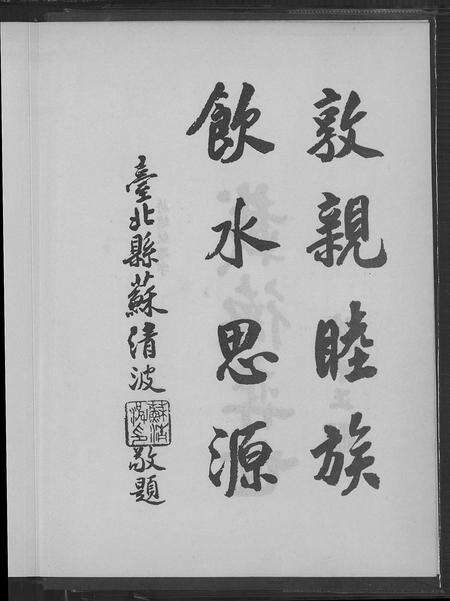 敦親睦族
飲水思源
臺北縣蘇清波
敬題